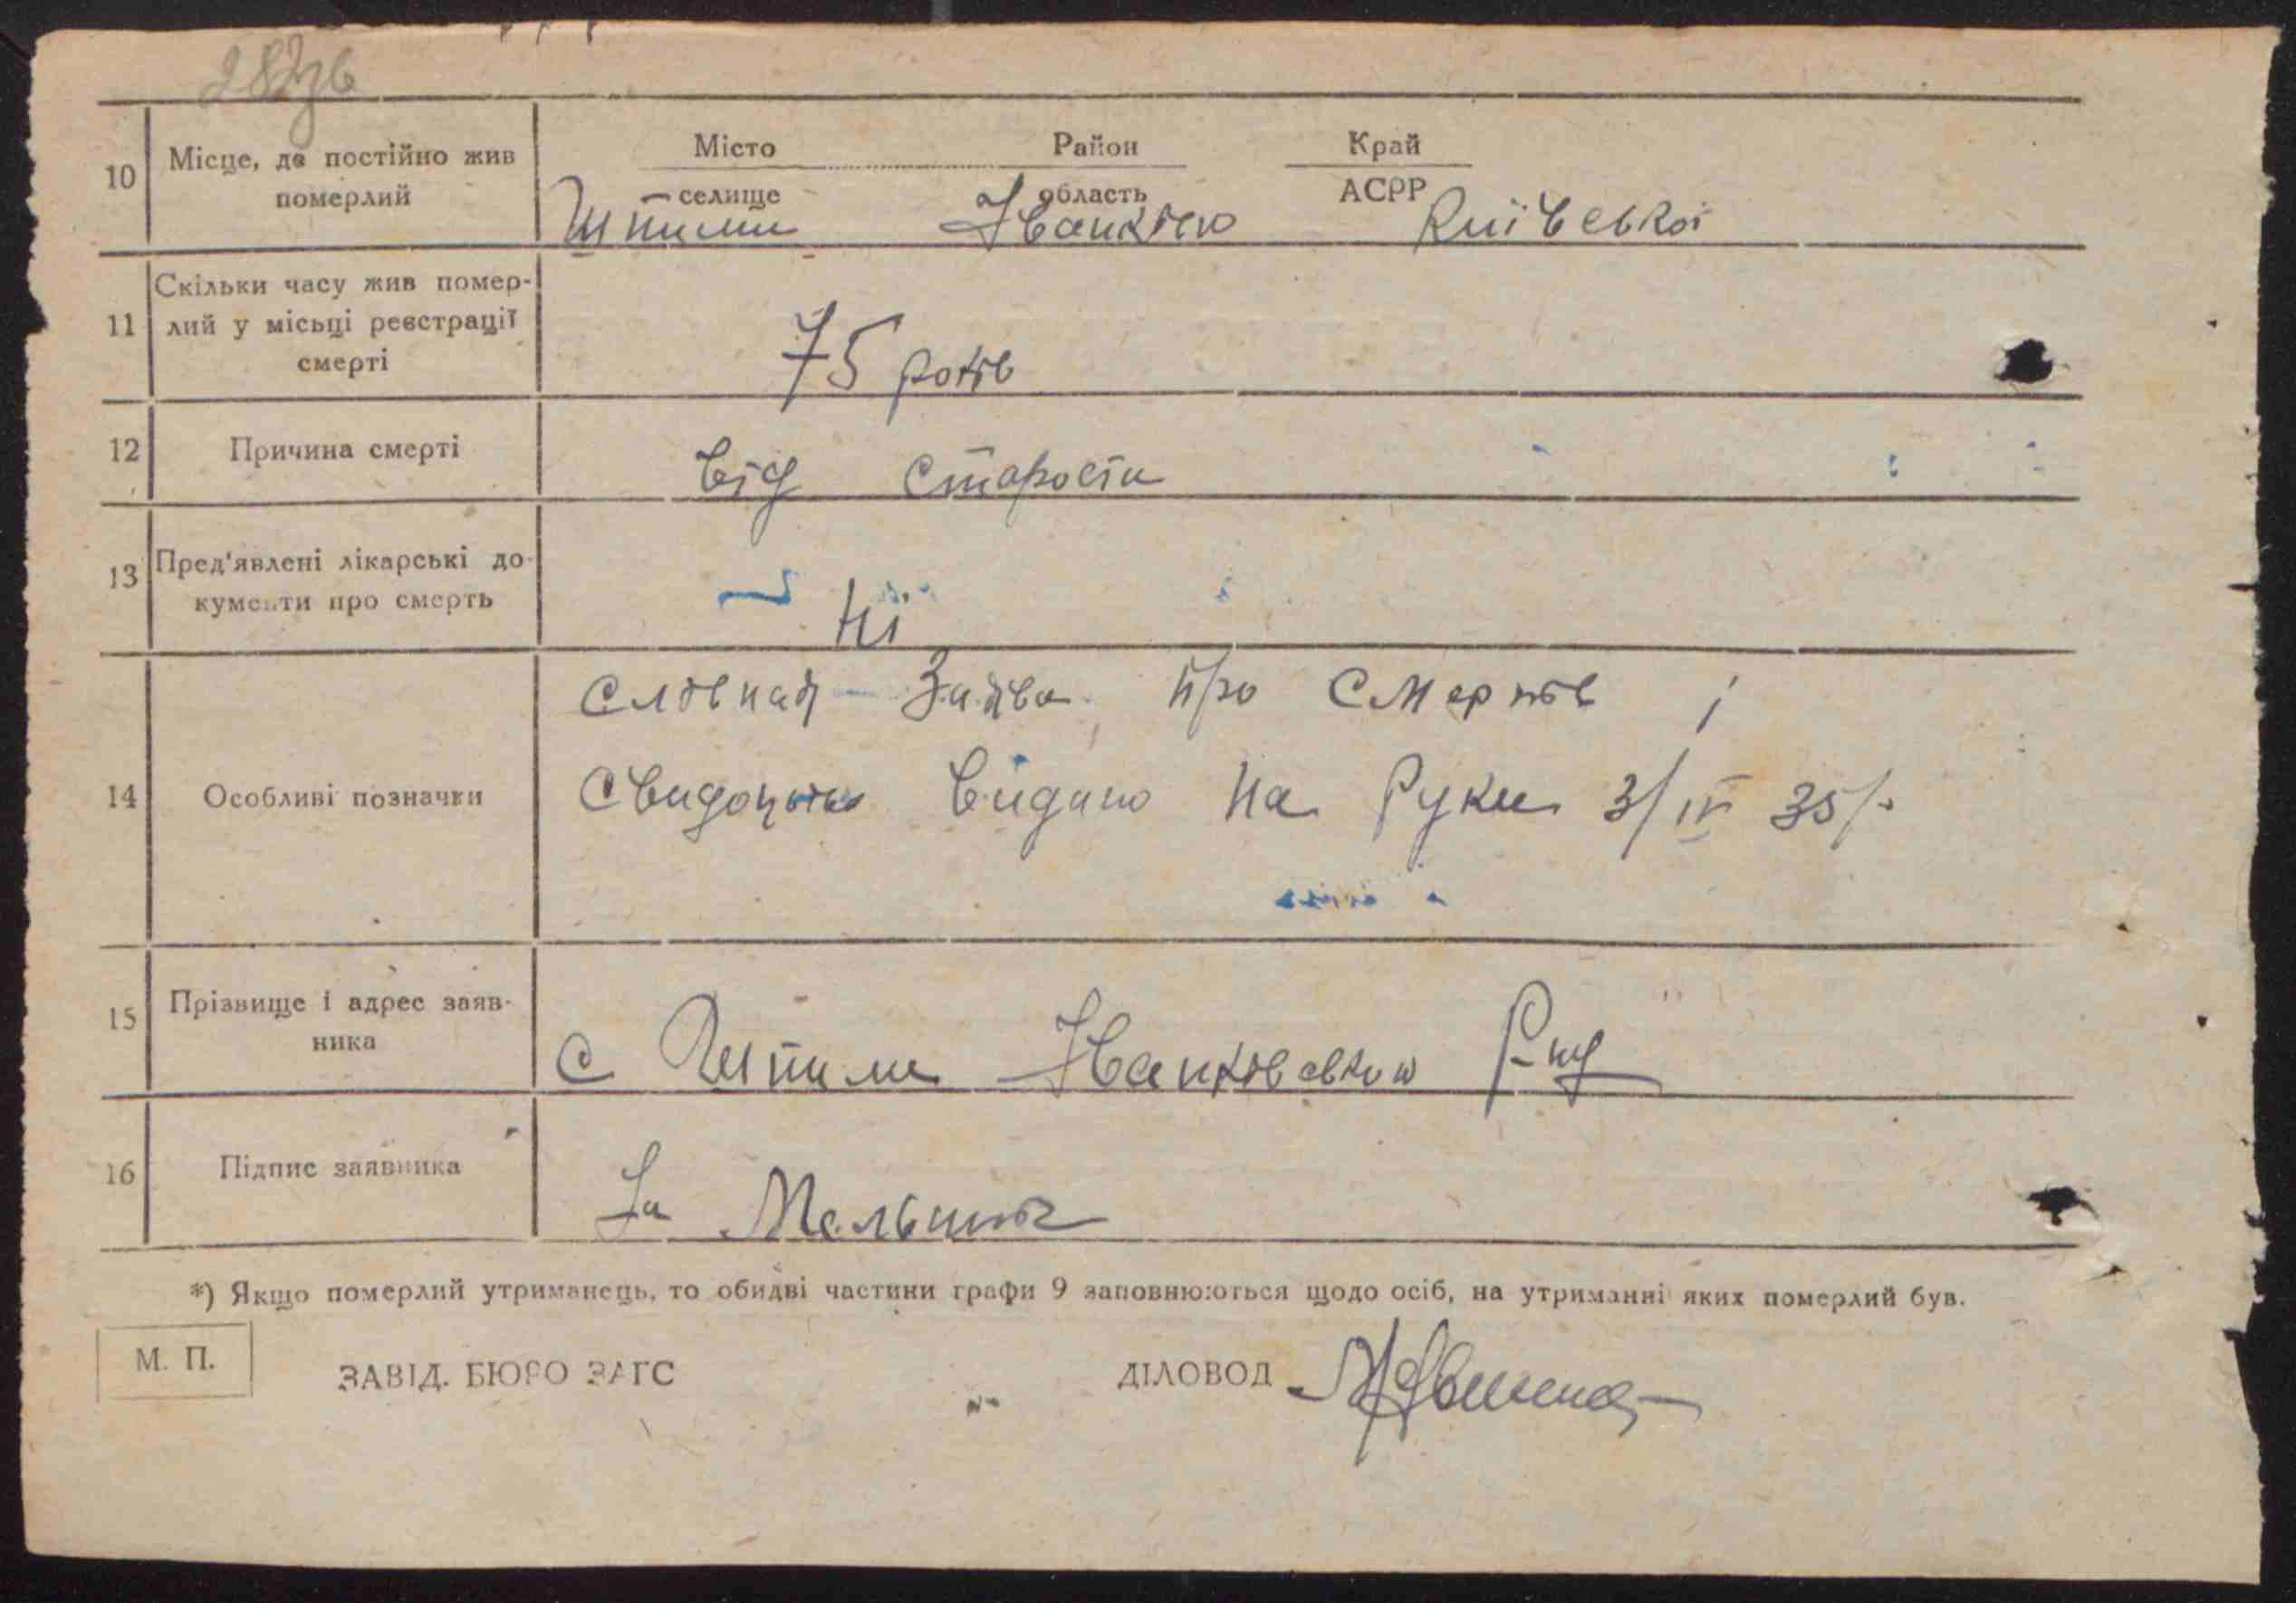 283зв
10 Місце, де постійно жив померлий
Місто Район Край
селище область АСРР
Шпили Іванків Київської
11 Скільки часу жив помер-
лий у місьці реєстрації
смерті
75 років
12 Причина смерті
від старости
13 Пред'явлені лікарські до-
кументи про смерть
Ні
14 Особливі позначки
Словная Заява про смерть і
Свидоцтво видано на Руки 3/IV 35 р.
15 Прізвище і адрес заяв-
ника
с Шпили Іванківського Р-ну
16 Підпис заявника
За Мельник
*) Якщо померлий утриманець, то обидві частини графи 9 заповнюються щодо осіб, на утриманні яких померлий був.
М. П.
ЗАВІД. БЮРО ЗАГС ДІЛОВОД